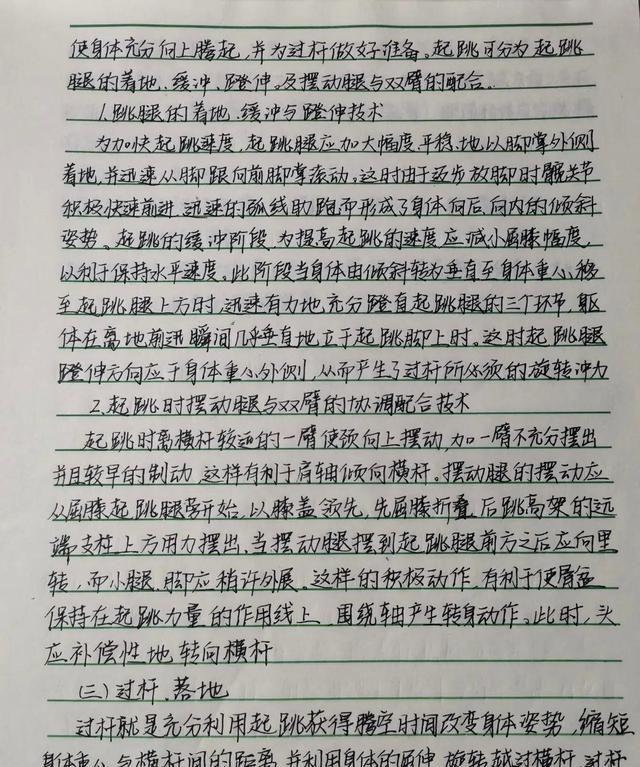 使身体充分向上腾起,并为过杆做好准备。起跳可分为起跳
腿的着地、缓冲、蹬伸。及摆动腿与双臂的配合。
1.跳腿的着地、缓冲与蹬伸技术
为加快起跳速度,起跳腿应加大幅度、平稳、地以脚掌外侧
着地,并迅速从脚跟向前脚掌滚动。这时由于逐步放脚时髋关节
积极快速前进,迅速的弧线助跑而形成了身体向后、向内的倾斜
姿势。起跳的缓冲阶段,为提高起跳的速度应减小屈膝幅度,
以利于保持水平速度。此阶段当身体由倾斜转为垂直至身体重心移
至起跳腿上方时,迅速有力地充分蹬直起跳腿的三个环节,躯
体在离地前迅瞬间几乎垂直地立于起跳脚上时。这时起跳腿
蹬伸方向应于身体重心外侧,从而产生了过杆所必须的旋转冲力
2.起跳时摆动腿与双臂的协调配合技术
起跳时离横杆较远的一臂使颈向上摆动,加一臂不充分摆出
并且较早的制动,这样有利于肩轴倾向横杆。摆动腿的摆动应
从屈膝起跳腿旁开始,以膝盖领先,先屈膝折叠,后跳高架的远
端支柱上方用力摆出,当摆动腿摆到起跳腿前方之后应向里
转,而小腿、脚应稍许外展。这样的积极动作,有利于使骨盆
保持在起跳力量的作用线上,围绕轴产生转身动作。此时,头
应补偿性地转向横杆
(三)过杆、落地
过杆就是充分利用起跳获得腾空时间改变身体姿势,缩短
身体重心与横杆间的距离,并利用身体的屈伸、旋转越过横杆,过杆